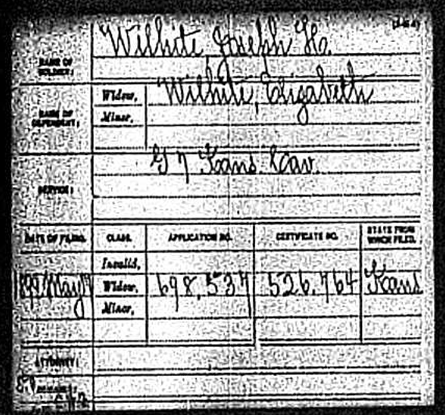 (3-164)
NAME OF SOLDIER: Wilhite, Joseph H.
NAME OF DEPENDENT: Widow, Wilhite, Elizabeth
Minor,
SERVICE: G 7 Kans. Cav.
DATE OF FILING. CLASS. APPLICATION NO. CERTIFICATE NO. STATE FROM WHICH FILED.
Invalid,
1899 May Widow, 698,537 526,764 Kans
Minor,
ATTORNEY: